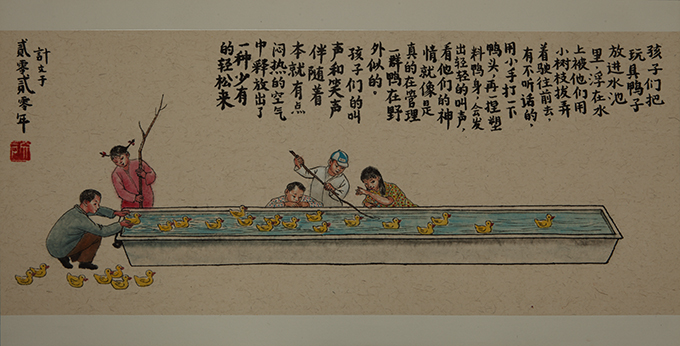 孩子们把
玩具鸭子
放进水池
里,浮在水
上被他们用
小树枝拔弄
着驶往前去,
有不听话的,
用小手打一下
鸭头,再一捏塑
料鸭身,会发
出轻轻的叫声,
看他们的神
情就像是
真的在管理
一群鸭在野
外似的。
孩子们的叫
声和笑声
伴随着
本就有点
闷热的空气
中释放出了
一种少有
的轻松来
计文于
贰零贰零年